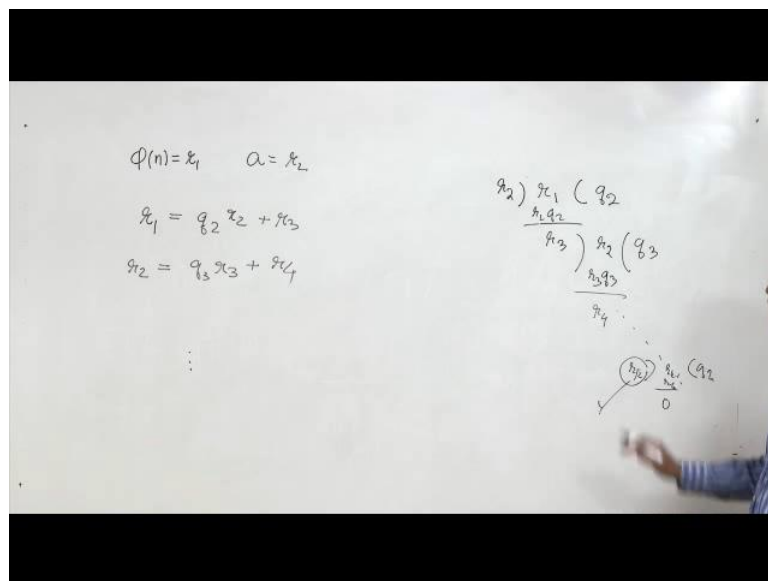 φ(n) = r₁ a = r₂
r₁ = q₂ r₂ + r₃
r₂ = q₃ r₃ + r₄
⋮
r₂) r₁ ( q₂
r₂ q₂
r₃ ) r₂ ( q₃
r₃ q₃
r₄
0